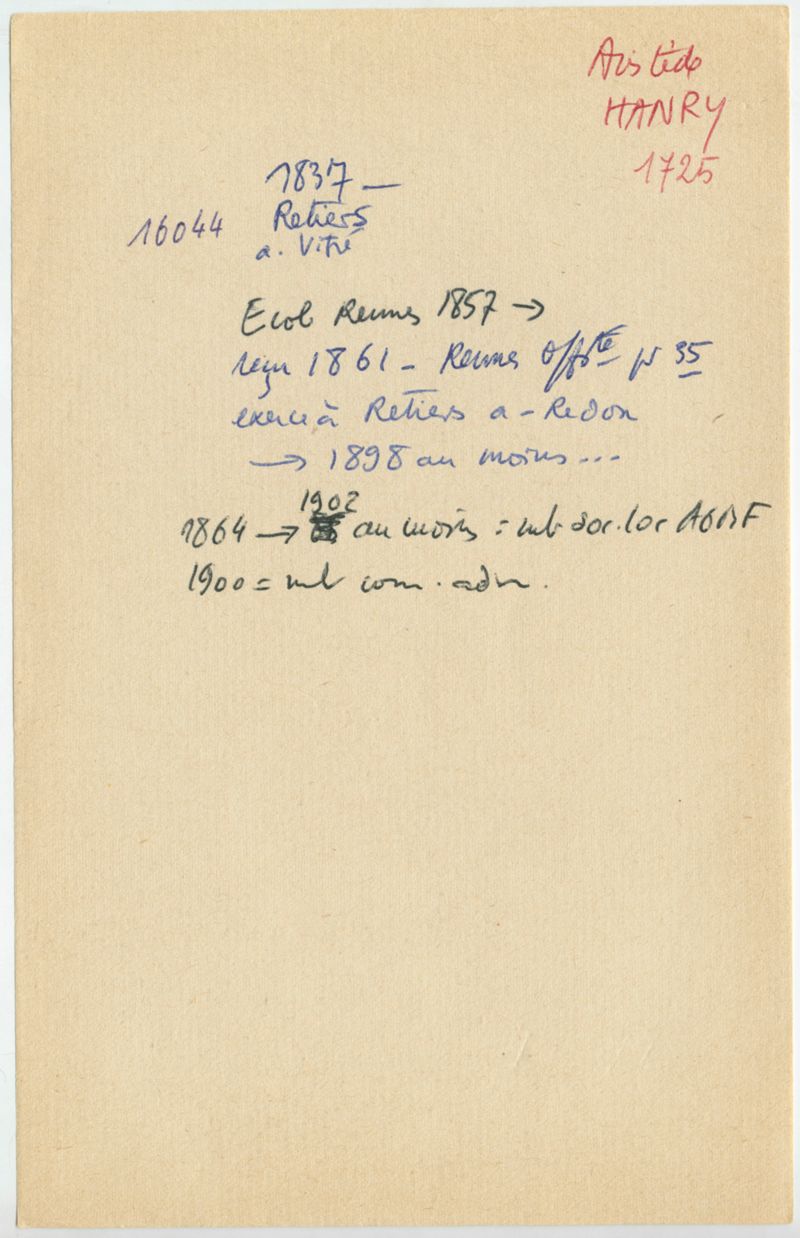 Aristide
HANRY
1725
1837 –
16044 Retiers
a. Vitré
Ecol Rennes 1857 →
reçu 1861 – Rennes Offste pr 35
exerce à Retiers a – Redon
→ 1898 au moins...
1902
1864 → au moins = mb soc. loc AGMF
1900 = mb com. adm.